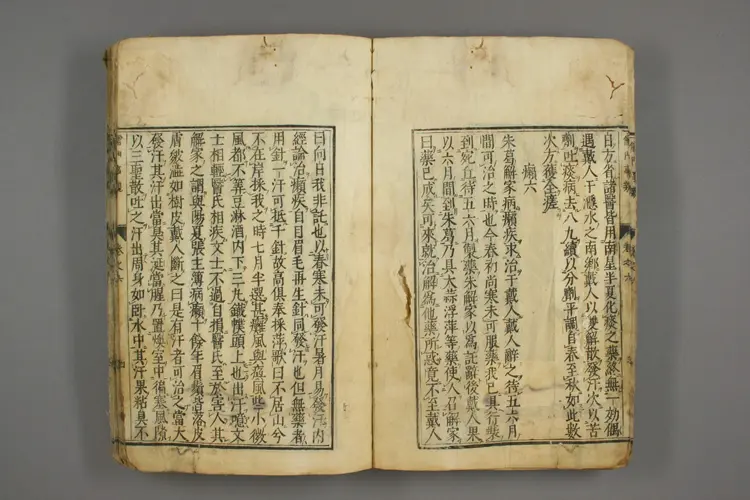 自方有諸醫皆用南星半夏化痰之藥終無一効偶
遇戴人于㶏水之南鄉戴人以雙解散發汗次以苦
劑吐痰病去八九續以分劑平調自春至秋如此數
次方獲全瘥
癩六
朱葛解家病癩疾求治于戴人戴人辭之待五六月
間可治之時也今春初尚寒未可服藥我已具行裝
到宛丘待五六月製藥朱解家以爲託辭後戴人果
以六月間到朱葛乃具大蒜浮萍等藥使人召解家
曰藥已成矣可來就治解爲他藥所惑竟不至戴人
曰向日我非託也以春寒未可發汗暑月易發汗内
經論治癩疾自目眉毛再生針同發汗也但無藥者
用針一汗可抵千針故高俱奉採萍歌曰不居山兮
不在岸採我之時七月半選甚癱風與瘓風些小微
風都不算豆淋酒内下三丸鐵幞頭上也出汗噫文
士相輕醫氏相疾文士不過自損醫氏至於害人其
解家之謂與陽夏張主簿病癩十餘年眉鬚皆落皮
膚皴澁如樹皮戴人斷之曰是有汗者可治之當大
發汗其汗出當臭其涎當腥乃置燠室中徧塞風隙
以三聖散吐之汗出周身如臥水中其汗果粘臭不